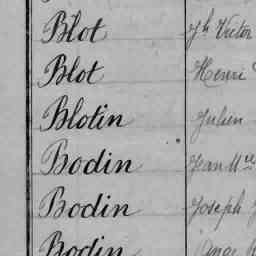 Blot Jh Victor
Blot Henri
Blotin Julien
Bodin Jean Mie
Bodin Joseph
Bodin Ange